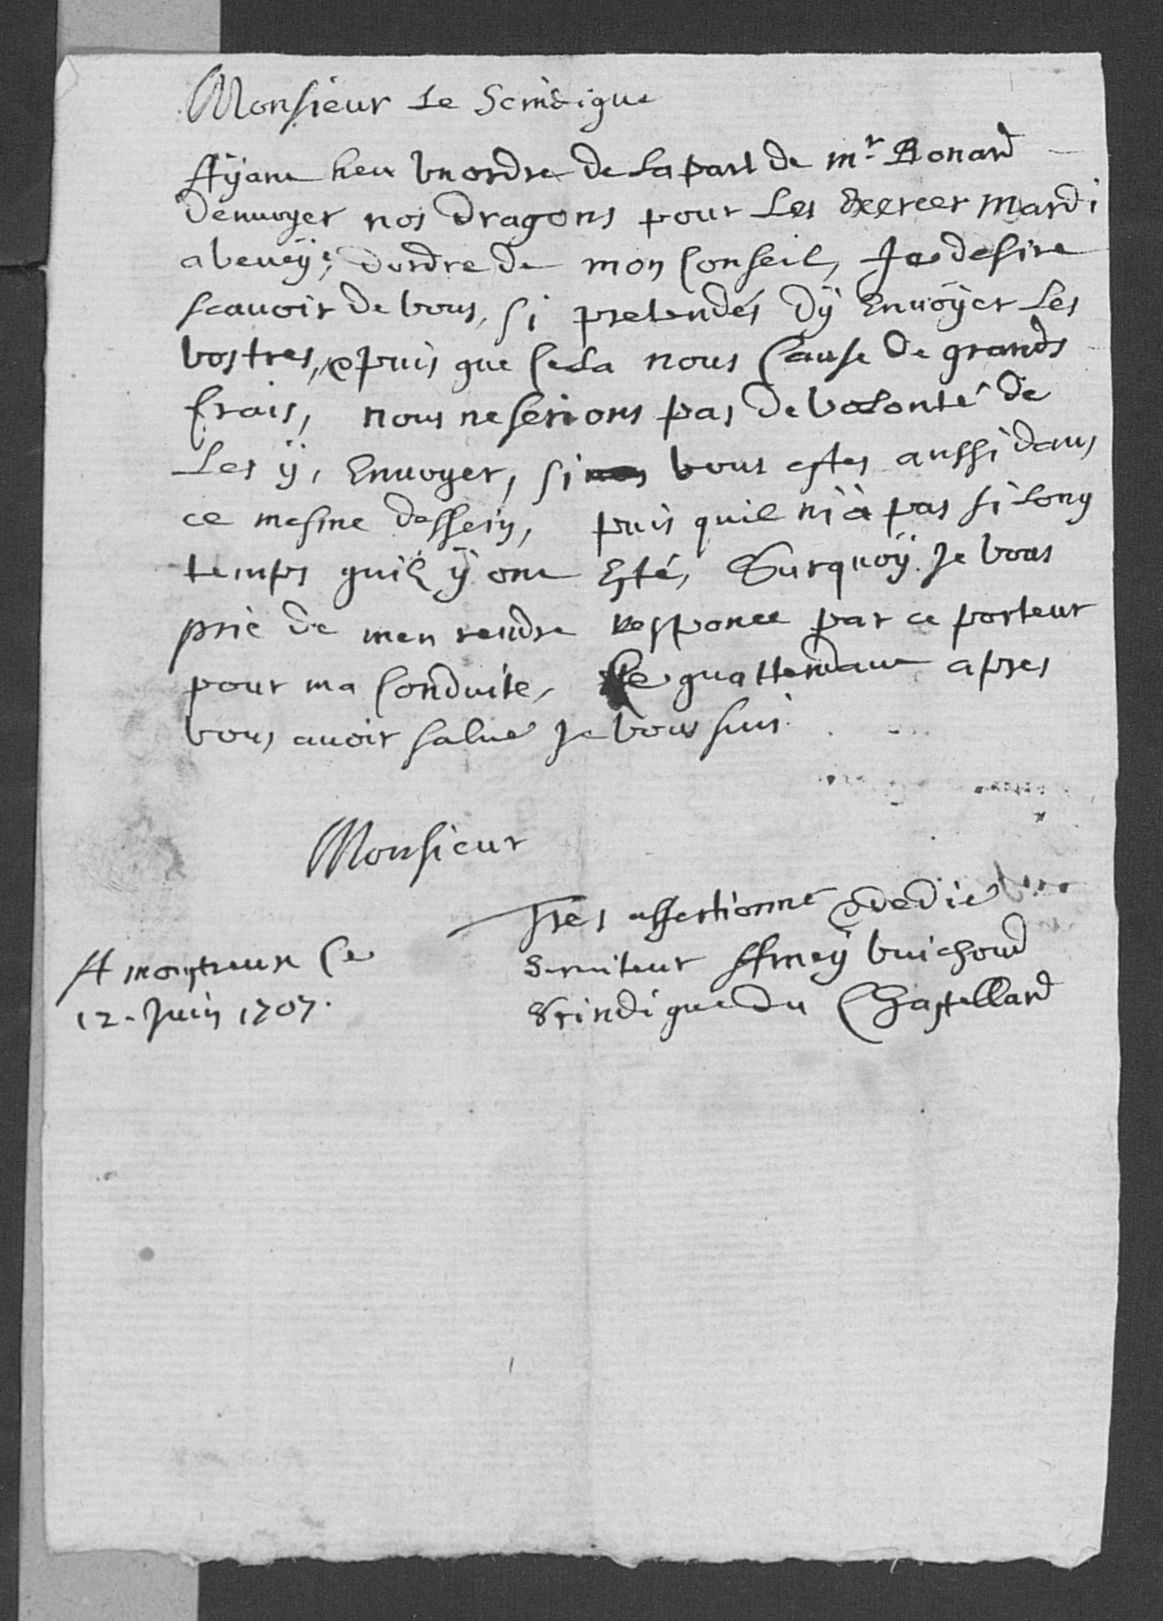 Monsieur Le Scindique
Aÿant heu un ordre de la part de mr. Bonard
denvoyer nos dragons pour Les Exercer mardi
a veveÿ, dordre de mon Conseil, Je desire
scavoir de vous, si pretendés dÿ Envoÿer Les
vostres, & puis que Cela nous Cause de grands
frais, nous ne serions pas de volonté de
Les ÿ, Envoyer, si vous estes aussi dans
ce mesme dessein, puis quil nia pas si long
temps quilz ÿ ont Esté, Surquoÿ Je vous
prie de men rendre responce par ce porteur
pour ma Conduite, Ce quattendant apres
vous avoir salué Je vous suis.
Monsieur
Tres affectionné & dedié
serviteur Ameÿ vuichoud
Scindique du Chastellard
A monstreux Ce
12. Juin 1707.